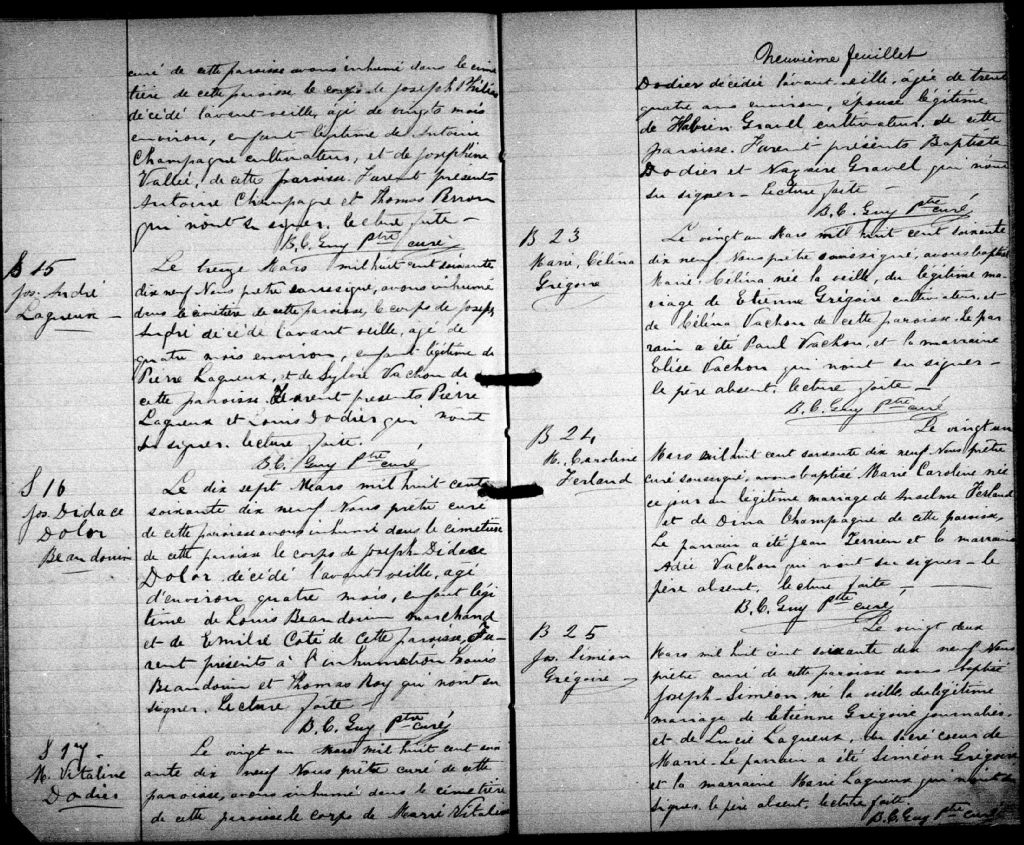 curé de cette paroisse avons inhumé dans le cime
tière de cette paroisse le corps de Joseph
décédé lavant veille, âgé de vingts mois
environ, enfant légitime de Antoine
Champagne cultivateurs, et de Josephine
Vallié, de cette paroisse. Furent présents
Antoine Champagne et Thomas Perron
qui n'ont su signer. lecture faite —
B. C. Guy Ptre curé
S 15
Jos. André
Lagueux —
Le treize Mars mil huit cent soixante
dix neuf Nous prêtre soussigné, avons inhumé
dans le cimetière de cette paroisse, le corps de Joseph
André décédé lavant veille, agé de
quatre mois environ, enfant légitime de
Pierre Lagueux, et de Sylvie Vachon de
cette paroisse. Furent présents Pierre
Lagueux et Louis Dodier qui n'ont
su signer. lecture faite.
B. C. Guy Ptre curé
S 16
Jos Didace
Dolor
Beaudouin
Le dix sept Mars mil huit cent
soixante dix neuf Nous prêtre curé
de cette paroisse avons inhumé dans le cimetière
de cette paroisse le corps de Joseph Didace
Dolor décédé lavant veille, agé
d'environ quatre mois, enfant légi
time de Louis Beaudouin marchand
et de Coté de cette paroisse, Fu-
rent présents à l'inhumation Louis
Beaudouin et Thomas Roy qui n'ont su
signer. Lecture faite —
B. C. Guy Ptre curé
S 17
M. Vitaline
Dodier
Le vingt un Mars mil huit cent soix
ante dix neuf Nous prêtre curé de cette
paroisse, avons inhumé dans le cimetière
de cette paroisse le corps de Marie Vitaline
Neuvième feuillet
Dodier décédée l'avant veille, âgée de trent
quatre ans environ, épouse légitime
de Gravel cultivateur, de cette
paroisse. Furent présents Baptiste
Dodier et Gravel qui n'ont
su signer — Lecture faite —
B. C. Guy Ptre curé
B 23
Marie, Célina
Grégoire
Le vingt un Mars mil huit cent soixante
dix neuf Nous prêtre soussigné, avons baptisé
Marie, Célina née la veille, du légitime ma-
riage de Etienne Grégoire cultivateur, et
de Célina Vachon de cette paroisse. Le par
rain a été Paul Vachon, et la marraine
Elise Vachon qui n'ont su signer —
le père absent. lecture faite —
B. C. Guy Ptre curé
B 24
M. Caroline
Ferland
Le vingt un
Mars mil huit cent soixante dix neuf. Nous prêtre
curé soussigné, avons baptisé Marie Caroline née
ce jour du légitime mariage de Anselme Ferland
et de Dina Champagne de cette paroisse,
Le parrain a été Jean Terrien et la marraine
Vachon qui n'ont su signer — le
père absent, lecture faite —
B. C. Guy Ptre curé
B 25
Jos. Siméon
Grégoire —
Le vingt deux
Mars mil huit cent soixante dix neuf Nous
prêtre curé de cette paroisse avons baptisé
Joseph-Siméon né la veille du légitime
mariage de Etienne Grégoire journalier
et de Lucie Lagueux, du Sacré coeur de
Marie. Le parrain a été Siméon Grégoire
et la marraine Marie Lagueux qui n'ont su
signer. le père absent, lecture faite.
B. C. Guy Ptre curé